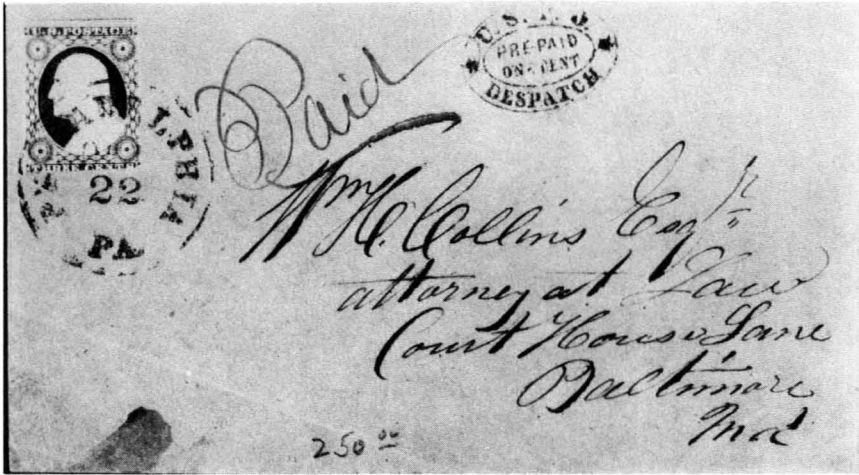 U.S. POSTAGE
THREE CENTS
22
PA
Paid
U.S.P.O.
PRE-PAID
ONE CENT
DESPATCH
Wm H. Collins Esqr
attorney at Law
Court House Lane
Baltimore
Md
250 00